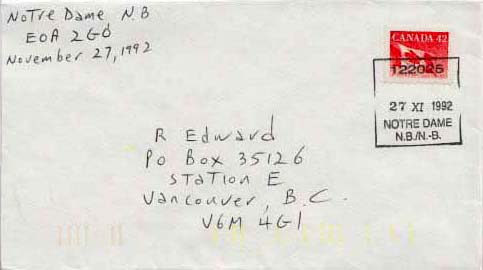 Notre Dame N.B
E0A 2G0
November 27, 1992
CANADA 42
122025
27 XI 1992
NOTRE DAME
N.B./N.-B.
R Edward
Po Box 35126
Station E
Vancouver, B.C.
V6M 4G1